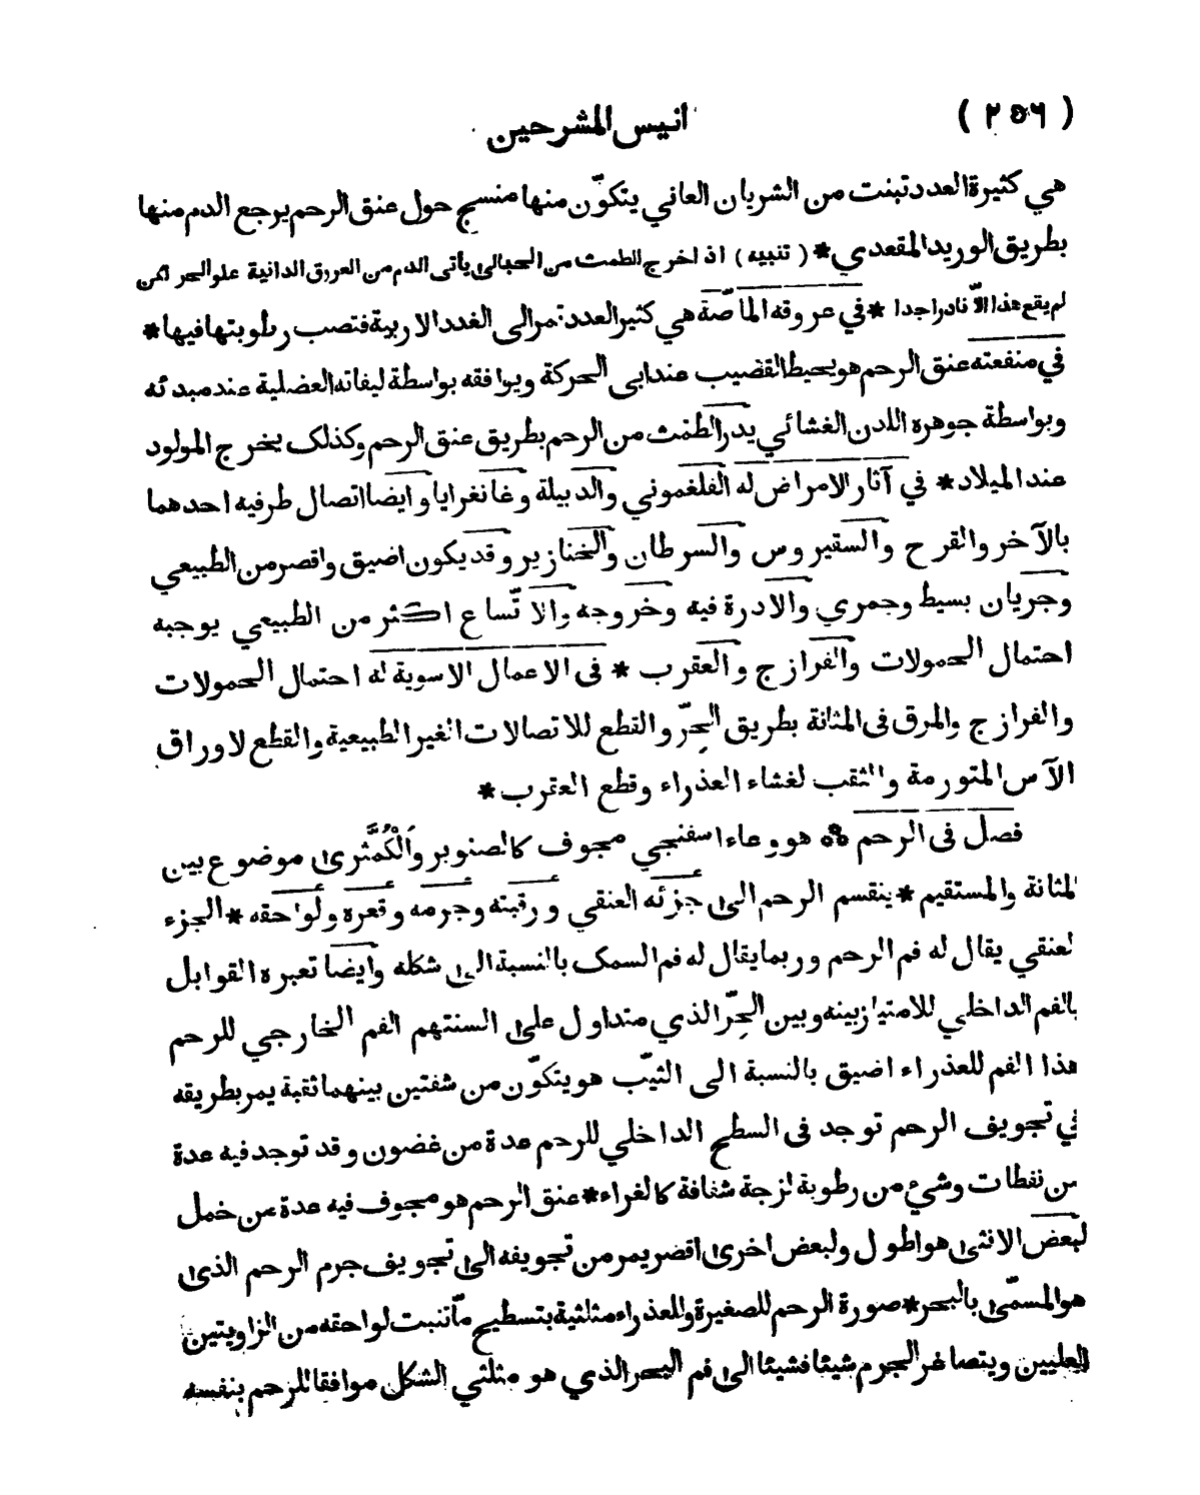 ( ٢٥٦ )
انيس المشرحين
هي كثيرة العدد تبنت من الشريان العاني يتكوّن منها منسج حول عنق الرحم يرجع الدم منها
بطريق الوريد المقعدي * ( تنبيه ) اذ اخرج الطمث من الحبالى يأتى الدم من العروق الدانية علو الحر لكن
لم يقع هذا الاّ نادرا جدا * في عروقه الماصّة هي كثير العدد تمر الى الغدد الاربية فتصب رطوبتها فيها *
في منفعته عنق الرحم هو يحيط القضيب عند ابى الحركة ويوافقه بواسطة ليفاته العضلية عند مبدئه
وبواسطة جوهره اللدن الغشائي يدر الطمث من الرحم بطريق عنق الرحم وكذلك يخرج المولود
عند الميلاد * في آثار الامراض له الفلغموني والدبيلة وغانغرايا وايضا اتصال طرفيه احدهما
بالآخر والقرح والسقيروس والسرطان والخنازير وقد يكون اضيق واقصر من الطبيعي
وجريان بسيط وجمري والادرة فيه وخروجه والاتّساع اكثر من الطبيعي يوجبه
احتمال الحمولات والفرازج والعقرب * فى الاعمال الاسوية له احتمال الحمولات
والفرازج والمرق فى المثانة بطريق الحِرّ والقطع للاتصالات الغير الطبيعية والقطع لاوراق
الآس المتورمة والثقب لغشاء العذراء وقطع العقرب *
فصل فى الرحم هو وعاء اسفنجي مجوف كالصنوبر وَالْكُمَّثرى موضوع بين
المثانة والمستقيم * ينقسم الرحم الى جزئه العنقي ورقبته وجرمه وقعره ولواحقه * الجزء
لعنقي يقال له فم الرحم وربما يقال له فم السمك بالنسبة الى شكله وايضا تعبره القوابل
بالفم الداخلي للامتياز بينه وبين الحِرّ الذي متداول على السنتهم الفم الخارجي للرحم
هذا الفم للعذراء اضيق بالنسبة الى الثيّب هو يتكوّن من شفتين بينهما ثقبة يمر بطريقه
في تجويف الرحم توجد فى السطح الداخلي للرحم عدة من غضون وقد توجد فيه عدة
من نفطات وشئ من رطوبة لزجة شفافة كالغراء * عنق الرحم هو مجوف فيه عدة من خمل
لبعض الانثى هو اطول ولبعض اخرى اقصر يمر من تجويفه الى تجويف جرم الرحم الذى
هو المسمّى بالبحر * صورة الرحم للصغيرة وللعذراء مثلثية بتسطيح مّا تنبت لواحقه من الزاويتين
العليين ويتصاغر الجرم شيئا فشيئا الى فم البحر الذي هو مثلثي الشكل موافقا للرحم بنفسه